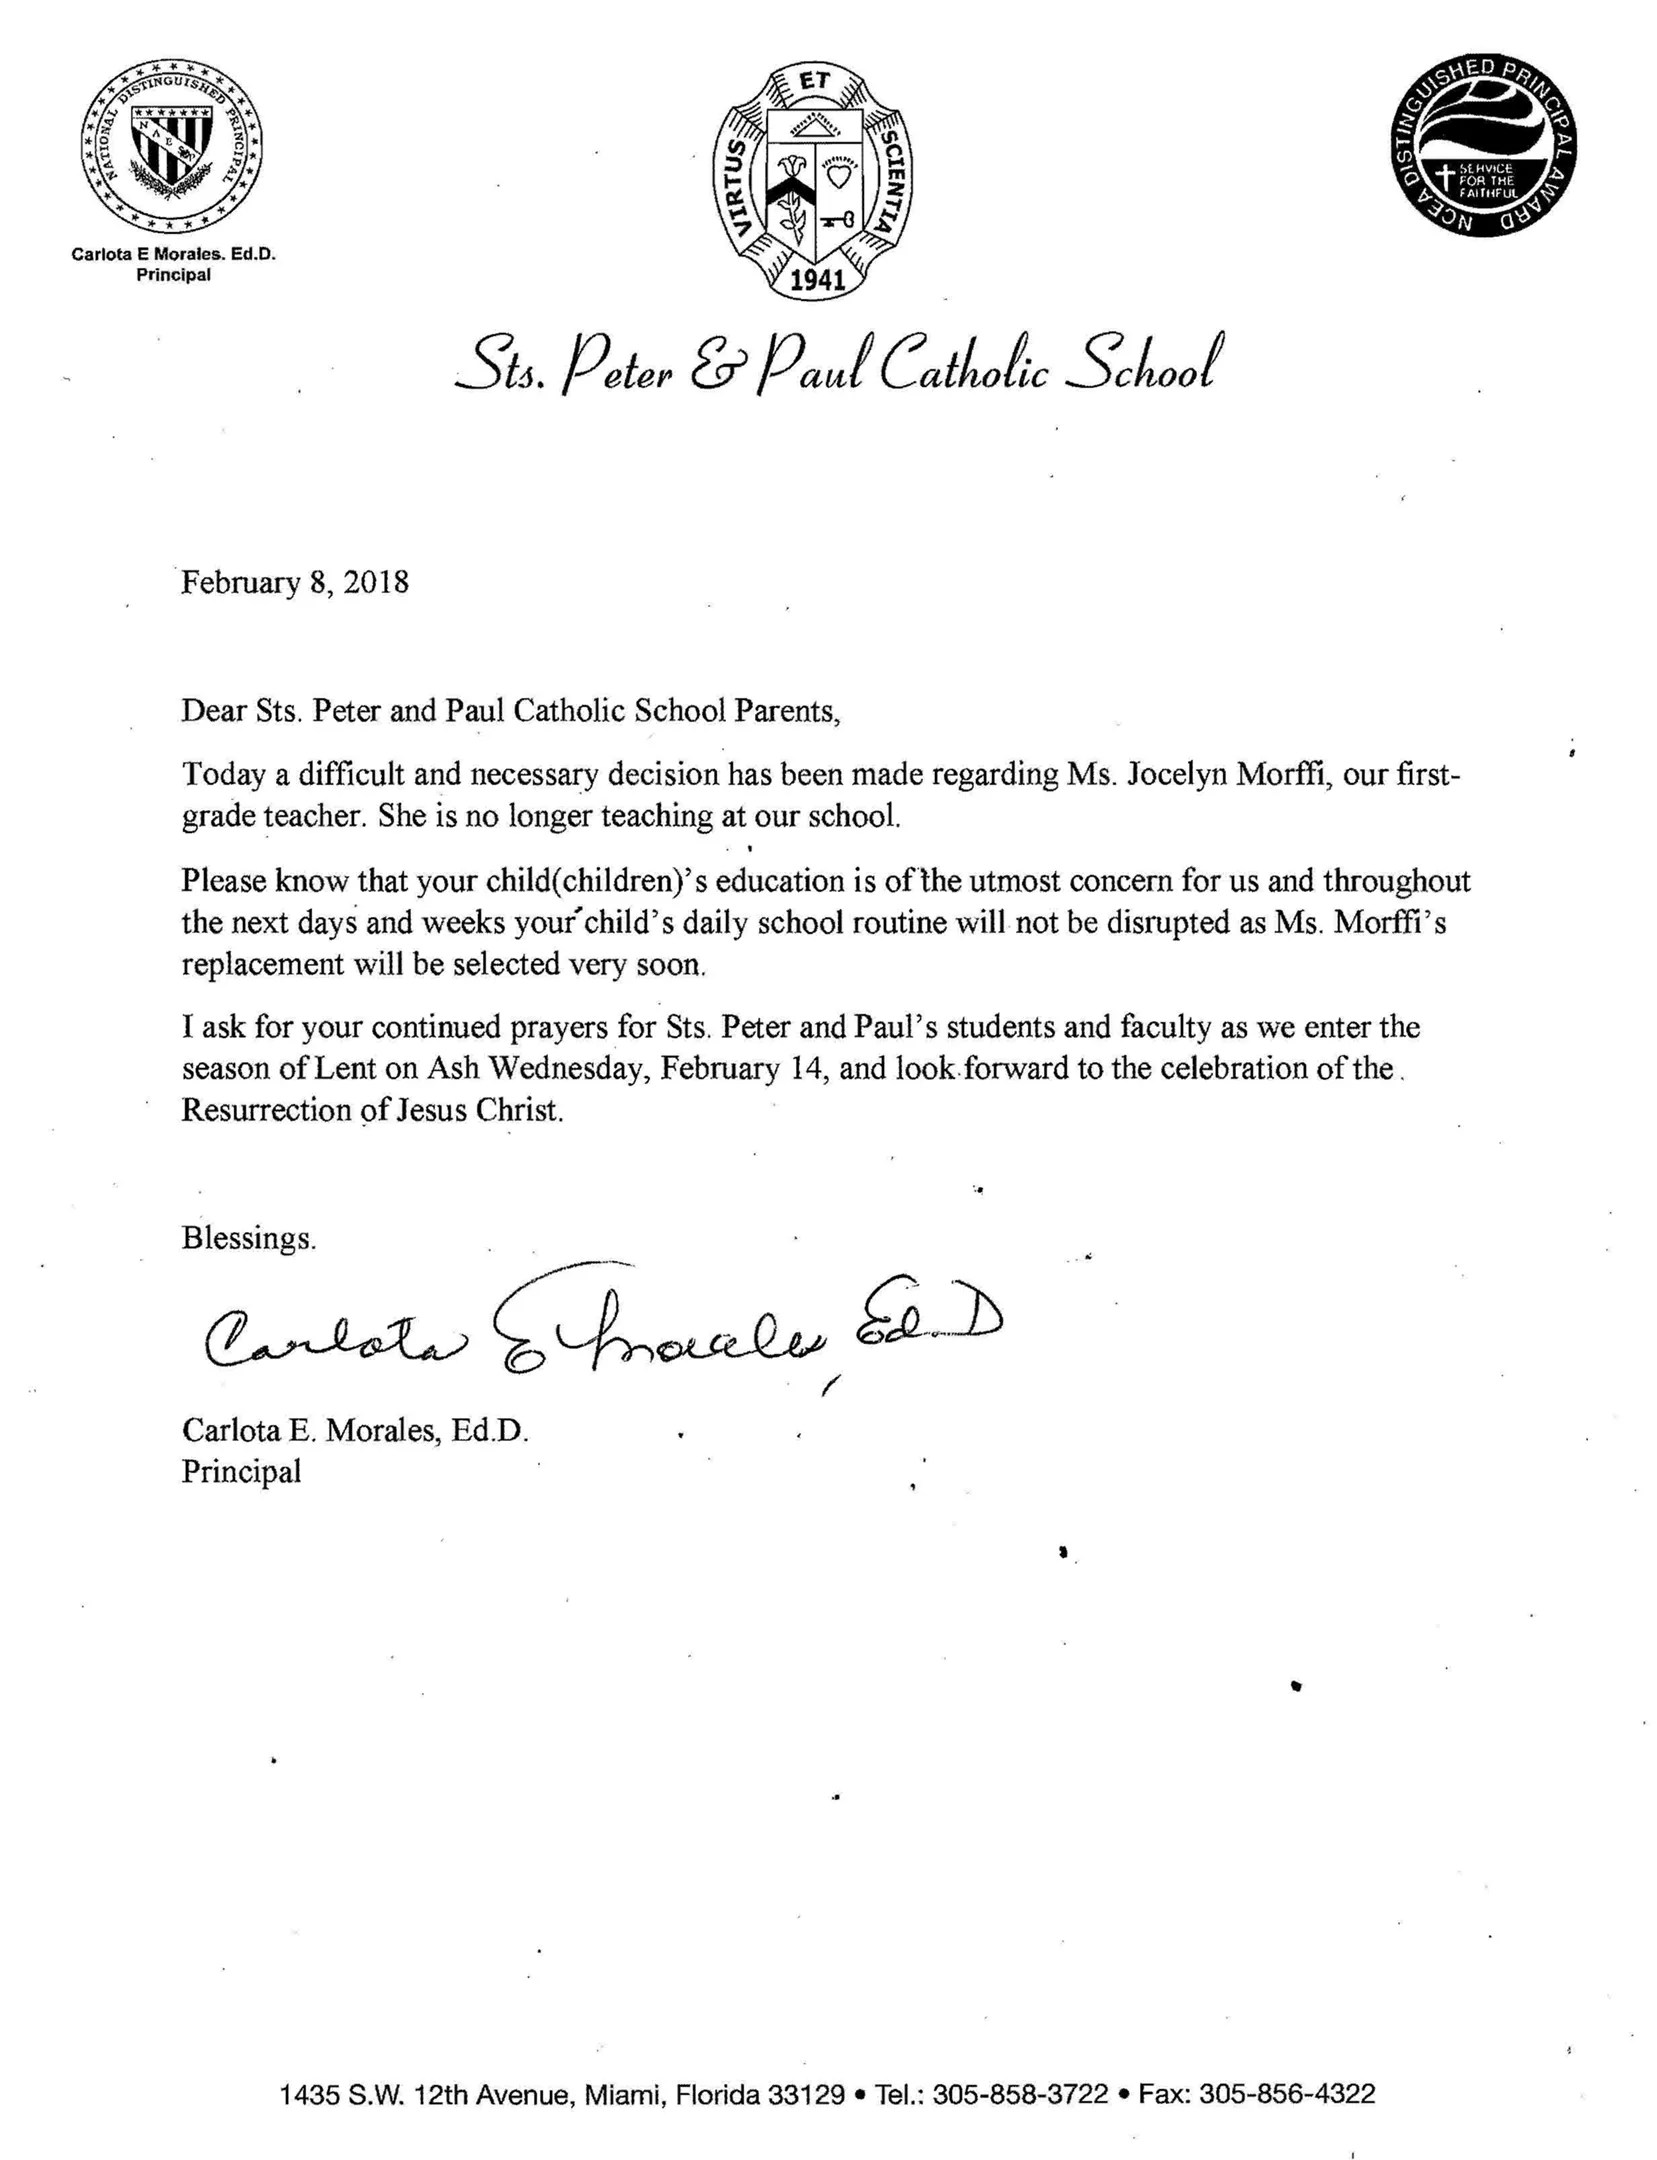 NATIONAL DISTINGUISHED PRINCIPAL
NAESP
Carlota E Morales. Ed.D.
Principal
VIRTUS ET SCIENTIA
1941
NCEA DISTINGUISHED PRINCIPAL AWARD
SERVICE
FOR THE
FAITHFUL
Sts. Peter & Paul Catholic School
February 8, 2018
Dear Sts. Peter and Paul Catholic School Parents,
Today a difficult and necessary decision has been made regarding Ms. Jocelyn Morffi, our first-
grade teacher. She is no longer teaching at our school.
Please know that your child(children)'s education is of the utmost concern for us and throughout
the next days and weeks your child's daily school routine will not be disrupted as Ms. Morffi's
replacement will be selected very soon.
I ask for your continued prayers for Sts. Peter and Paul's students and faculty as we enter the
season of Lent on Ash Wednesday, February 14, and look forward to the celebration of the
Resurrection of Jesus Christ.
Blessings.
Carlota E Morales, Ed.D
Carlota E. Morales, Ed.D.
Principal
1435 S.W. 12th Avenue, Miami, Florida 33129 • Tel.: 305-858-3722 • Fax: 305-856-4322